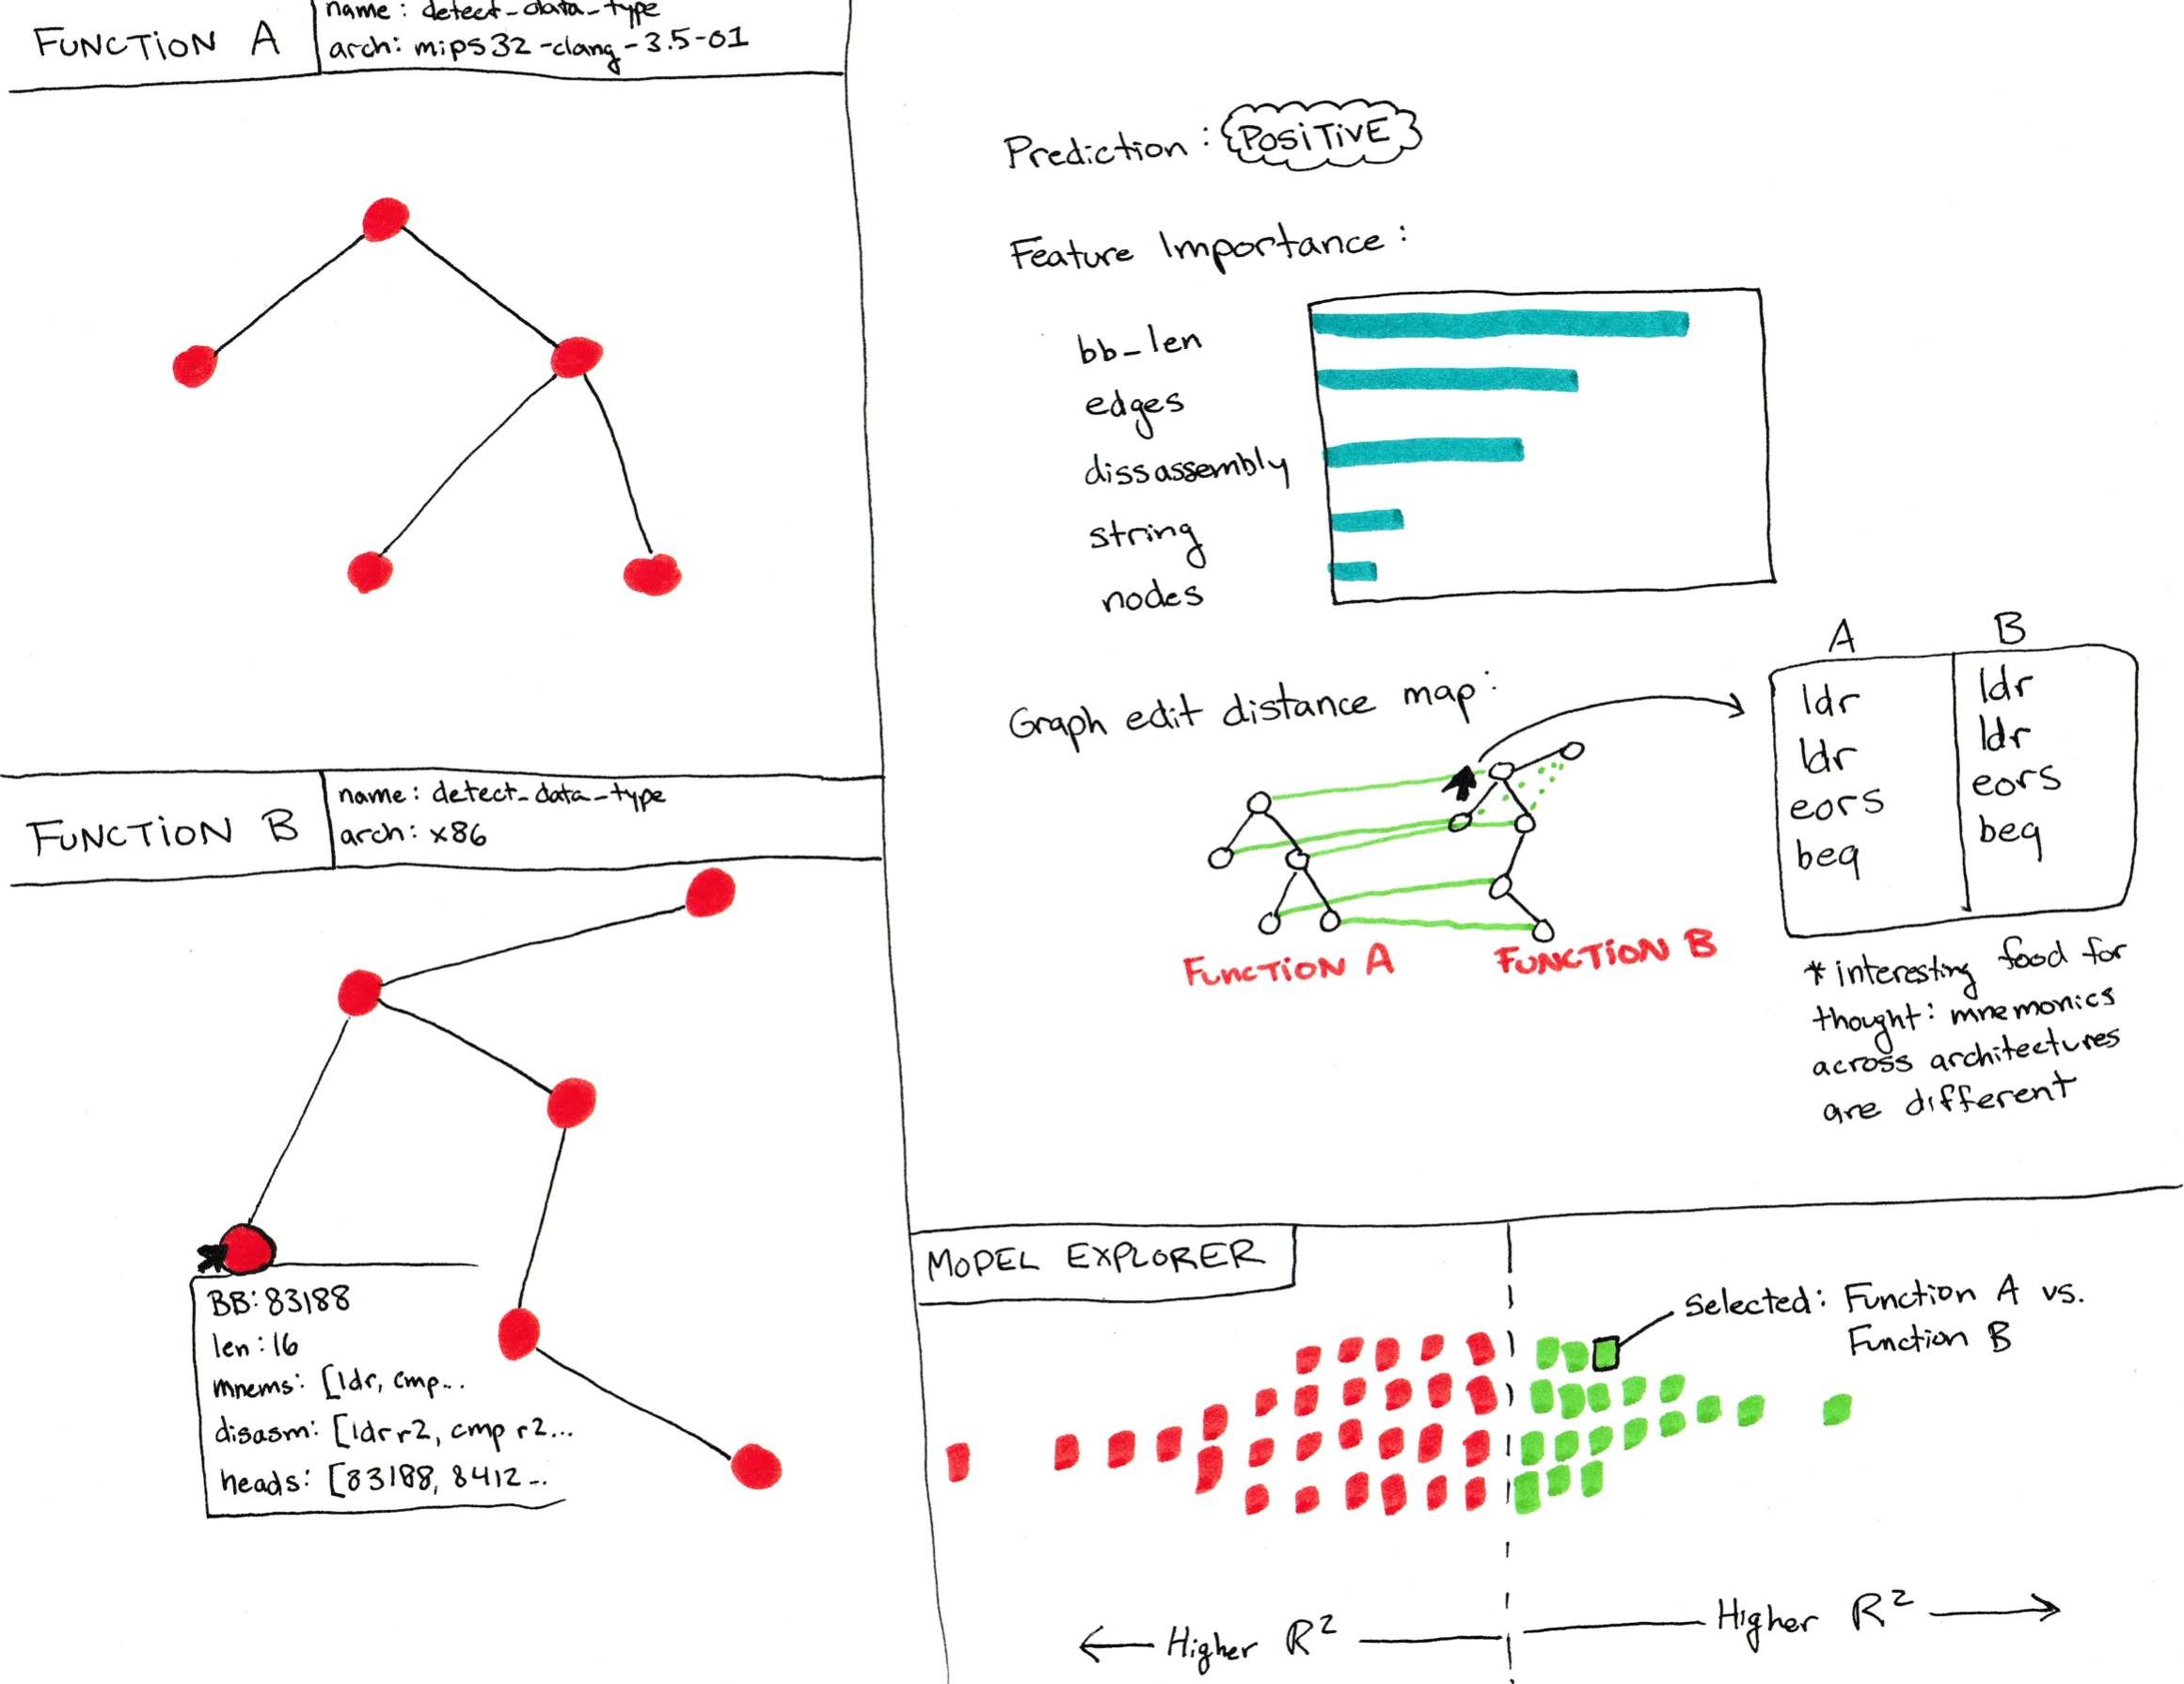 FUNCTION A
name: detect-data-type
arch: mips32-clang-3.5-O1
FUNCTION B
name: detect-data-type
arch: x86
BB: 83188
len: 16
mnems: [ldr, cmp...
disasm: [ldr r2, cmp r2...
heads: [83188, 8412...
Prediction: POSITIVE
Feature Importance:
bb-len
edges
dissassembly
string
nodes
Graph edit distance map:
FUNCTION A
FUNCTION B
A
B
ldr
ldr
ldr
ldr
eors
eors
beq
beq
* interesting food for
thought: mnemonics
across architectures
are different
MODEL EXPLORER
Selected: Function A vs.
Function B
Higher R²
Higher R²